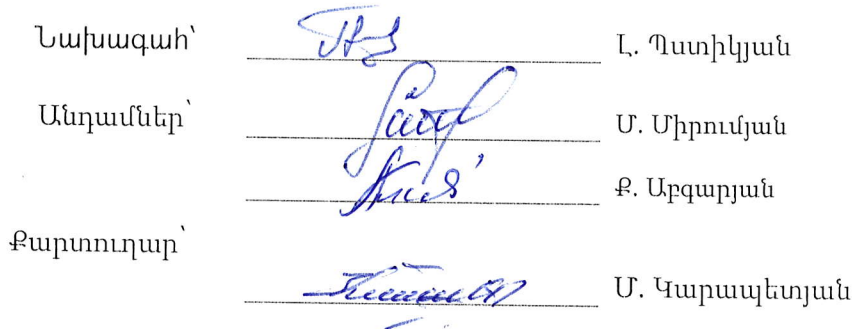 Նախագահ՝ Լ. Պստիկյան
Անդամներ՝ Մ. Միրումյան
Ք. Աբգարյան
Քարտուղար՝
Մ. Կարապետյան